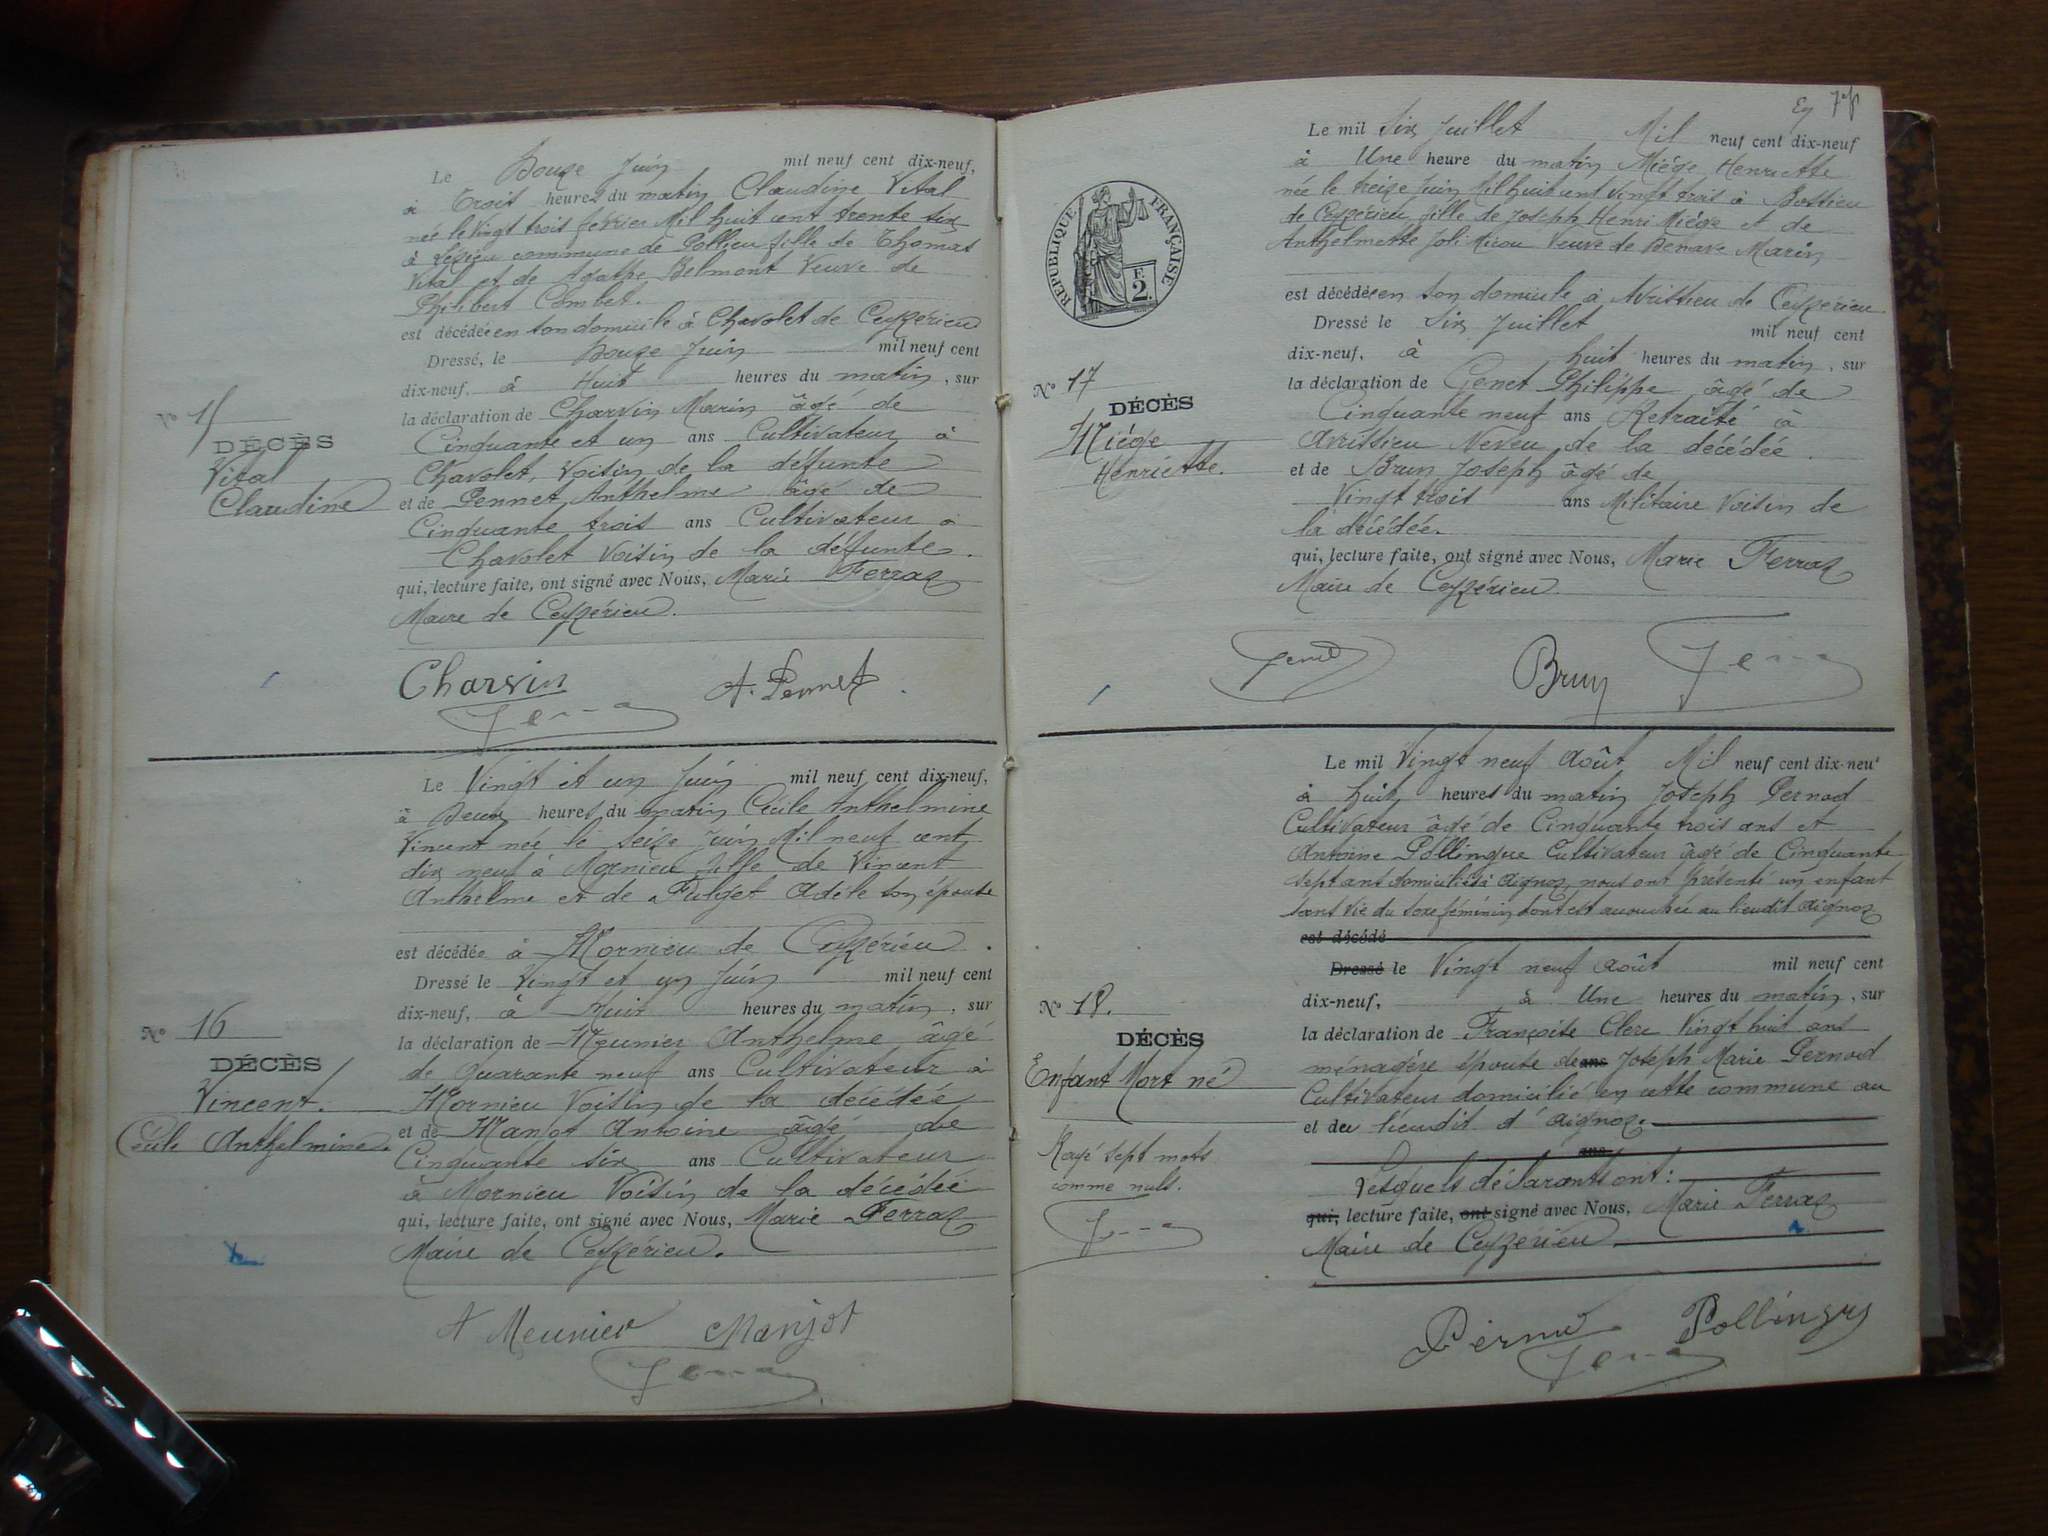 Le Douze Juin mil neuf cent dix-neuf,
à Troit heures du matin Claudine Vital
née le vingt trois fevrier Mil huit cent trente six
à commune de Pollieu fille de Thomas
Vital et de Agathe Belmont Veuve de
Philibert Combet.
est décédée en son domicile à Chavolet de Ceyzérieu
Dressé, le Douze Juin mil neuf cent
dix-neuf, à Huit heures du matin, sur
la déclaration de Charvin Marin âgé de
Cinquante et un ans Cultivateur à
Chavolet, Voisin de la défunte
et de Pennet Anthelme âgé de
Cinquante trois ans Cultivateur à
Chavolet Voisin de la défunte.
qui, lecture faite, ont signé avec Nous, Marie Ferraz
Maire de Ceyzérieu.
N° 15
DÉCÈS
Vital
Claudine
Charvin A. Pennet
Le Vingt et un Juin mil neuf cent dix-neuf,
à Deux heures du matin Cécile Anthelmine
Vincent née le seize Juin Mil neuf cent
dix neuf à Mornieu fille de Vincent
Anthelme et de Pulget Adèle son épouse
est décédée à Mornieu de Ceyzérieu.
Dressé le Vingt et un Juin mil neuf cent
dix-neuf, à Huit heures du matin, sur
la déclaration de Meunier Anthelme âgé
de quarante neuf ans Cultivateur à
Mornieu Voisin de la décédée
et de Manjot Antoine âgé de
Cinquante six ans Cultivateur
à Mornieu Voisin de la décédée
qui, lecture faite, ont signé avec Nous, Marie Ferraz
Maire de Ceyzérieu.
N° 16
DÉCÈS
Vincent.
Cécile Anthelmine.
A Meunier Manjot
RÉPUBLIQUE FRANÇAISE
F. 2.
Le mil Six Juillet Mil neuf cent dix-neuf
à Une heure du matin Miége Henriette
née le treize Juin Mil huit cent vingt trois à Bossieu
de Ceyzérieu fille de Joseph Henri Miége et de
Anthelmette Joli Veuve de Benave Marin
est décédée en son domicile à Avrissieu de Ceyzérieu
Dressé le Six Juillet mil neuf cent
dix-neuf, à huit heures du matin, sur
la déclaration de Genet Philippe âgé de
Cinquante neuf ans Retraité à
Avrissieu Neveu de la décédée.
et de Brun Joseph âgé de
Vingt trois ans Militaire Voisin de
la décédée.
qui, lecture faite, ont signé avec Nous, Marie Ferraz
Maire de Ceyzérieu
N° 17
DÉCÈS
Miége
Henriette.
Genet Brun
Le mil Vingt neuf Août Mil neuf cent dix-neuf
à huit heures du matin Joseph Pernod
Cultivateur âgé de Cinquante trois ans et
Antoine Pollingue Cultivateur âgé de Cinquante
sept ans domiciliés à Aignoz, nous ont présenté un enfant
sans vie du sexe féminin dont est accouchée au lieudit Aignoz
est décédé
Dressé le Vingt neuf Août mil neuf cent
dix-neuf, à Une heures du matin, sur
la déclaration de Françoise Clerc Vingt huit ans
ménagère épouse de ans Joseph Marie Pernod
Cultivateur domicilié en cette commune au
et deu lieudit d'Aignoz.
ans
Lesquels déclarants ont:
qui, lecture faite, ont signé avec Nous, Marie Ferraz
Maire de Ceyzérieu
N° 18.
DÉCÈS
Enfant Mort né
Rayé sept mots
comme nuls.
Pernod Pollingue